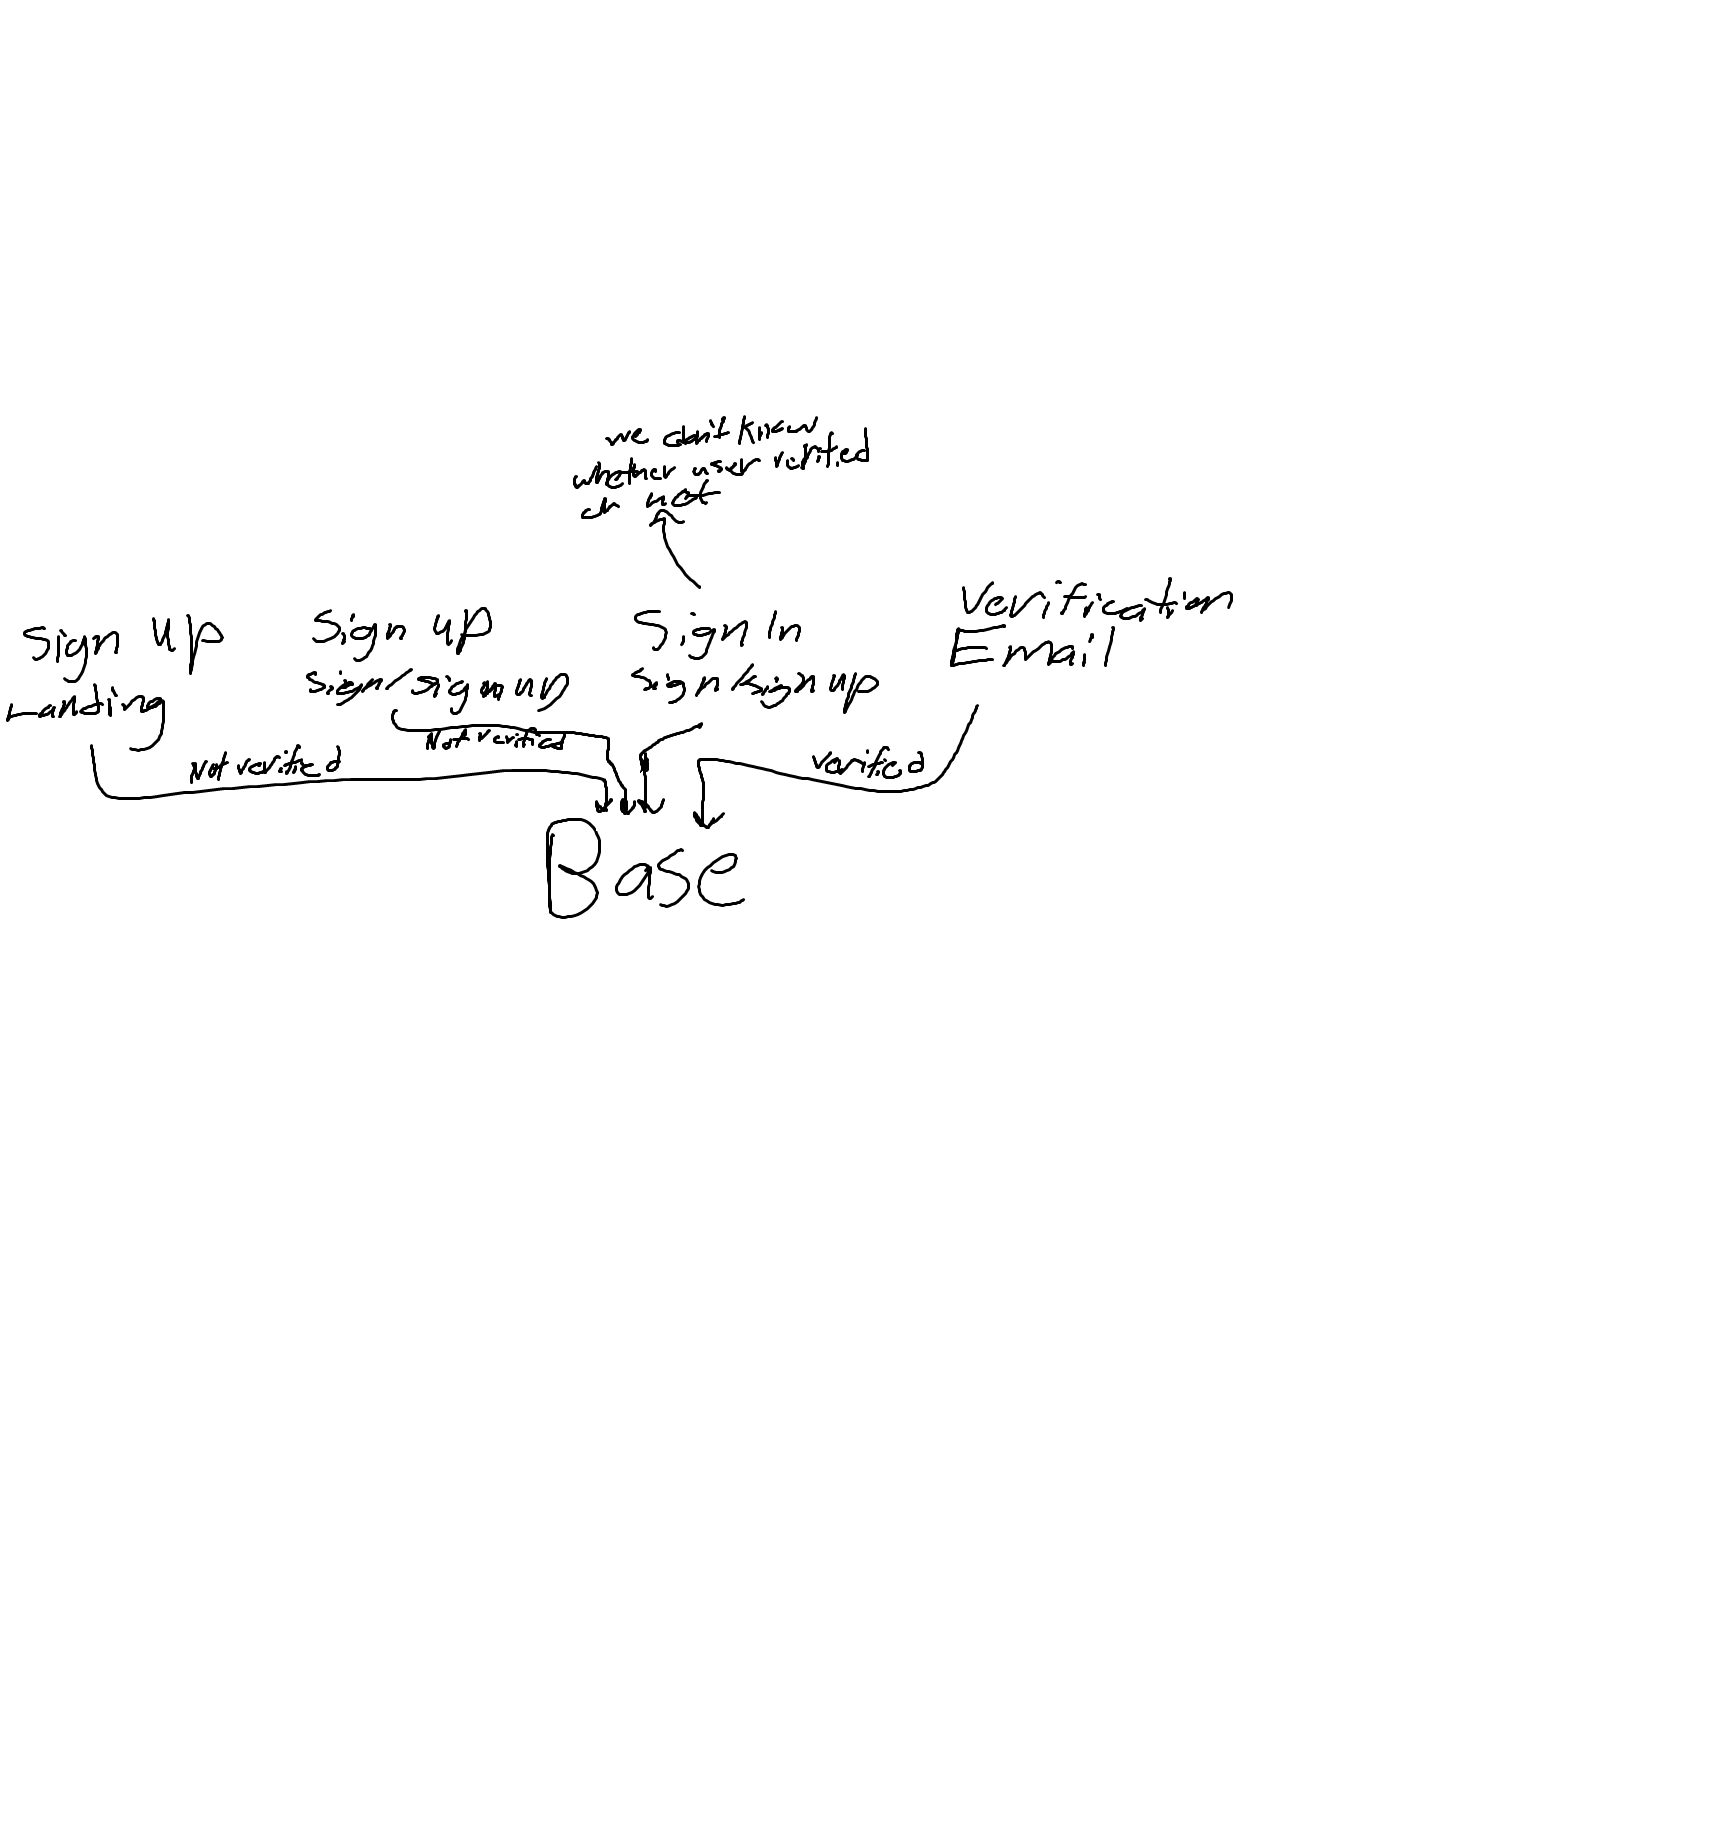 we don't know
whether user verified
or not
Sign up
Landing
Sign up
sign/sign up
Sign In
sign/sign up
Verification
Email
Not verified
Not verified
verified
Base